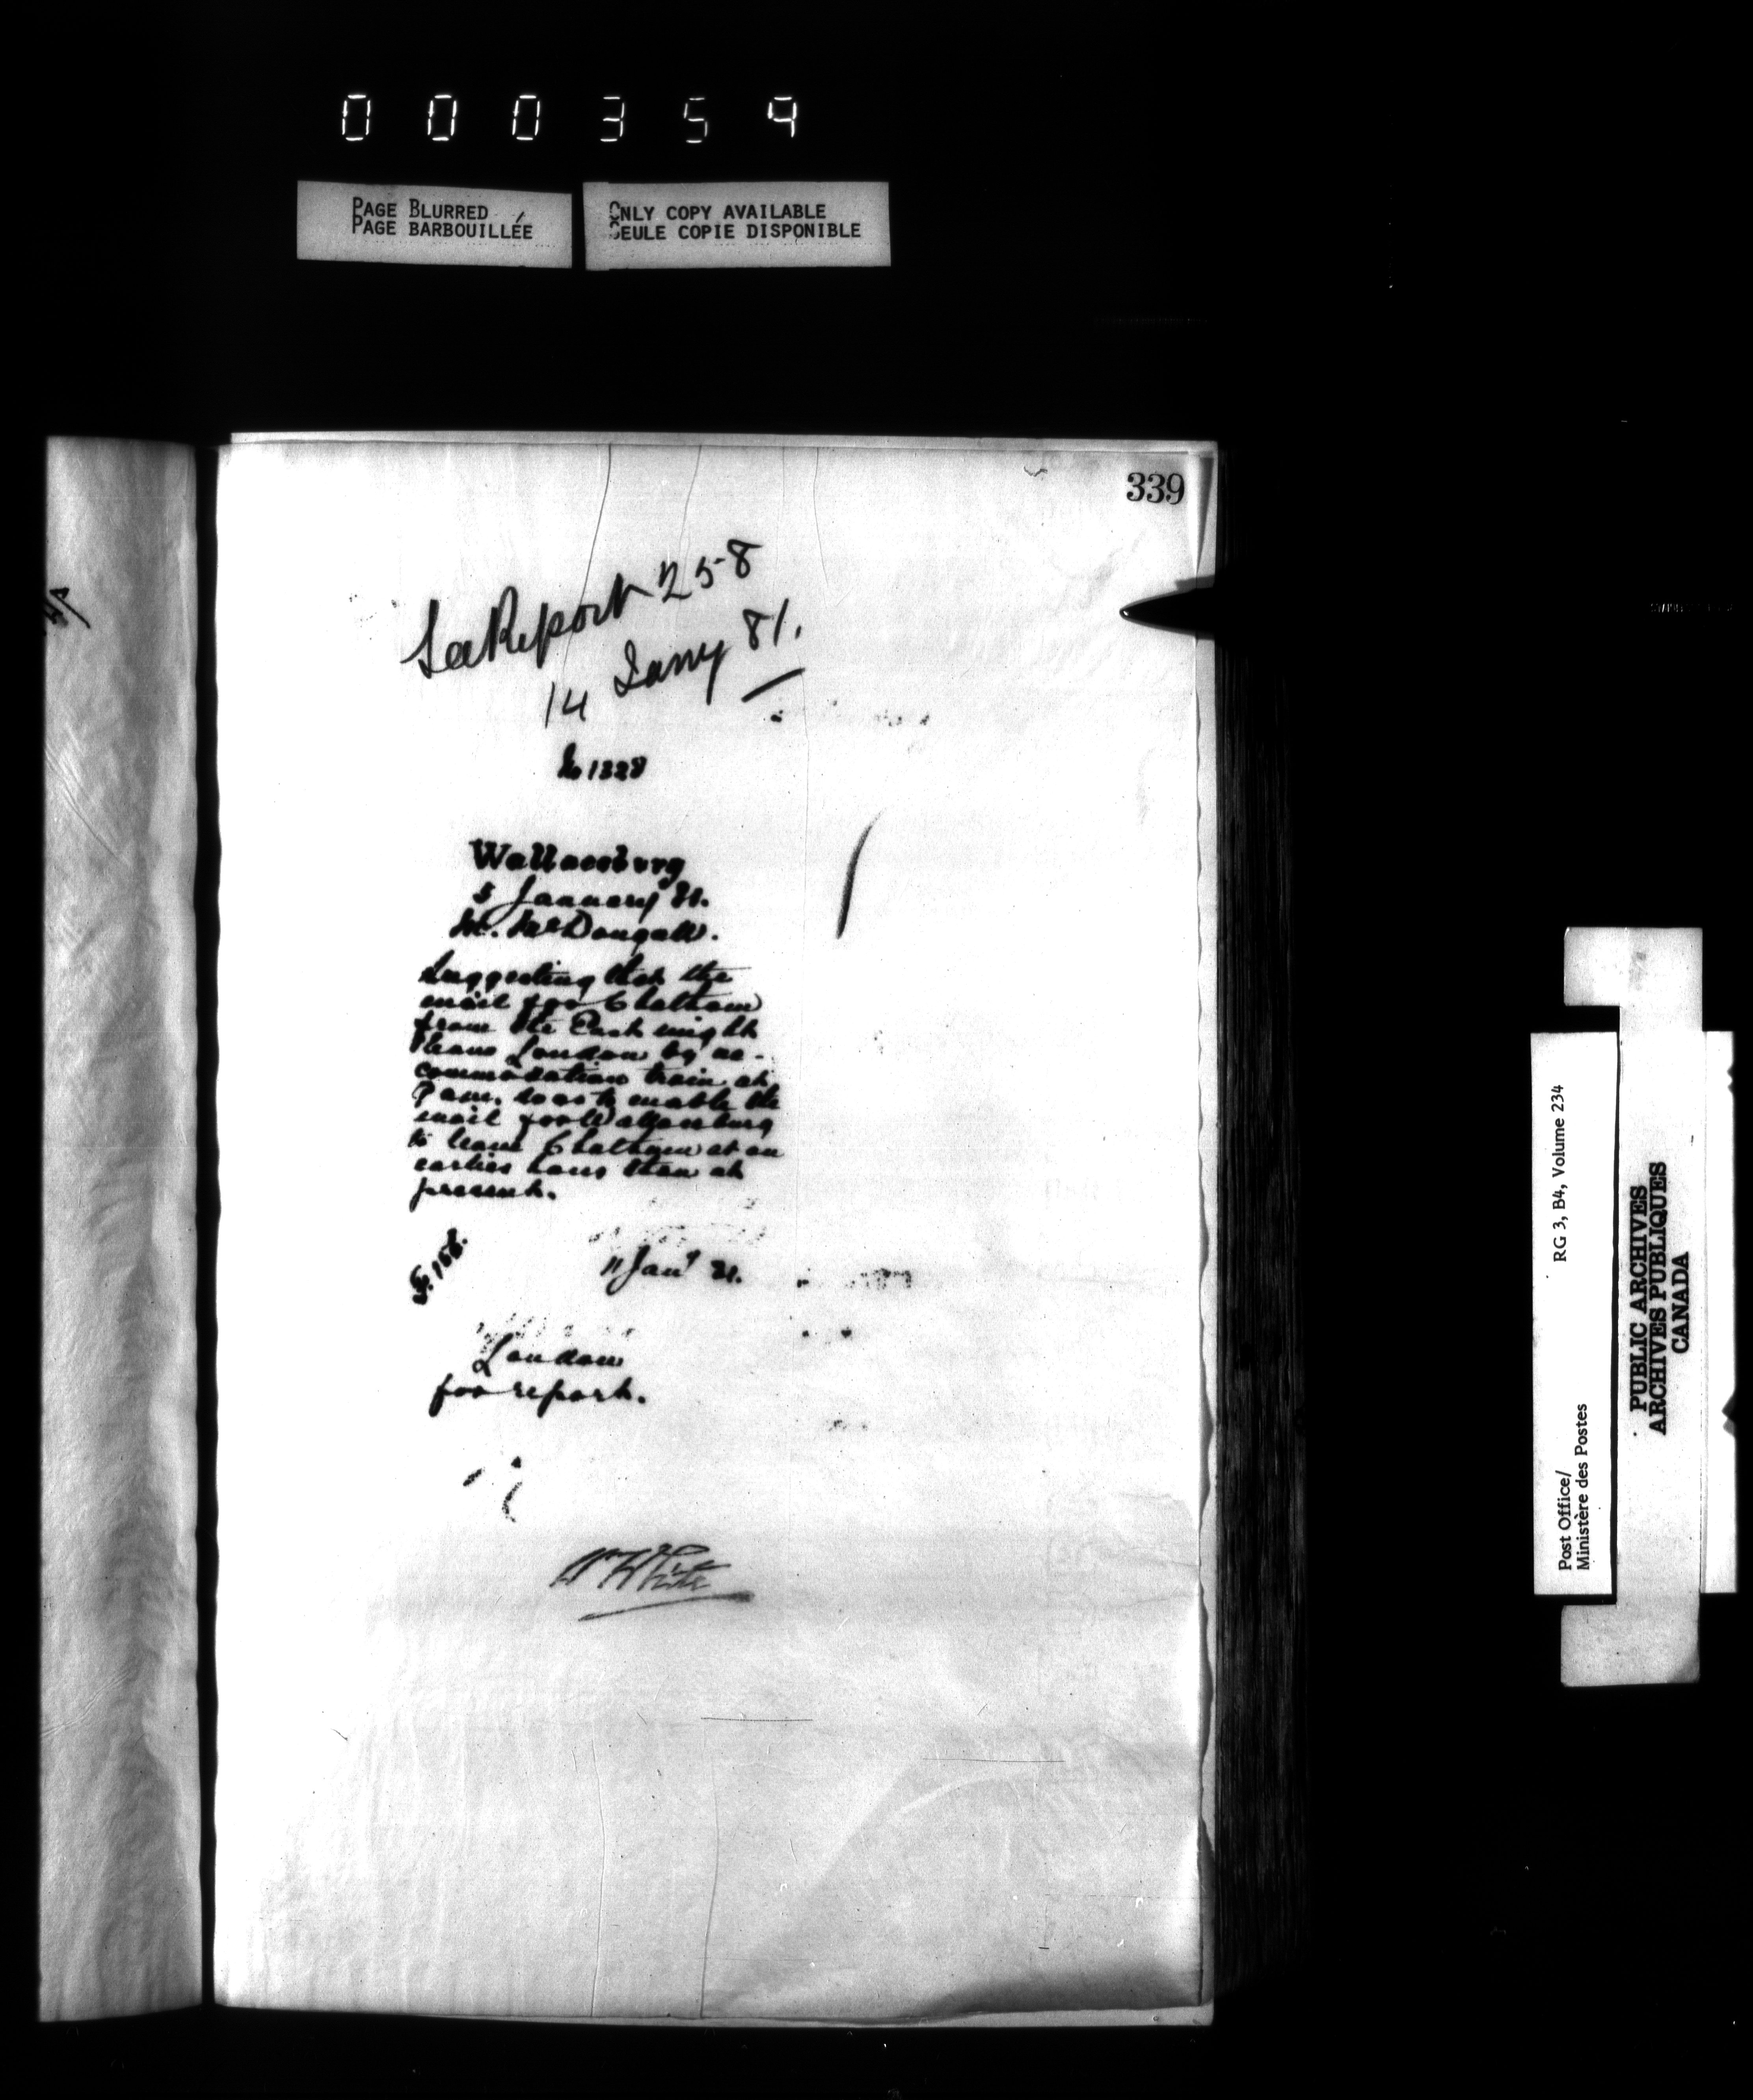 000354
PAGE BLURRED
PAGE BARBOUILLÉE
ONLY COPY AVAILABLE
SEULE COPIE DISPONIBLE
339
See Report 258
14 Jany 81.
No 1328
Wallaceburg
5 January 81.
M. McDougall.
Suggesting that the
mail for Chatham
from the East might
leave London by ac-
commodation train at
7 am. so as to enable the
mail for Wallaceburg
to leave Chatham at an
earlier hour than at
present.
11 Jany 81.
London
for report.
W White
RG 3, B4, Volume 234
Post Office/
Ministère des Postes
PUBLIC ARCHIVES
ARCHIVES PUBLIQUES
CANADA